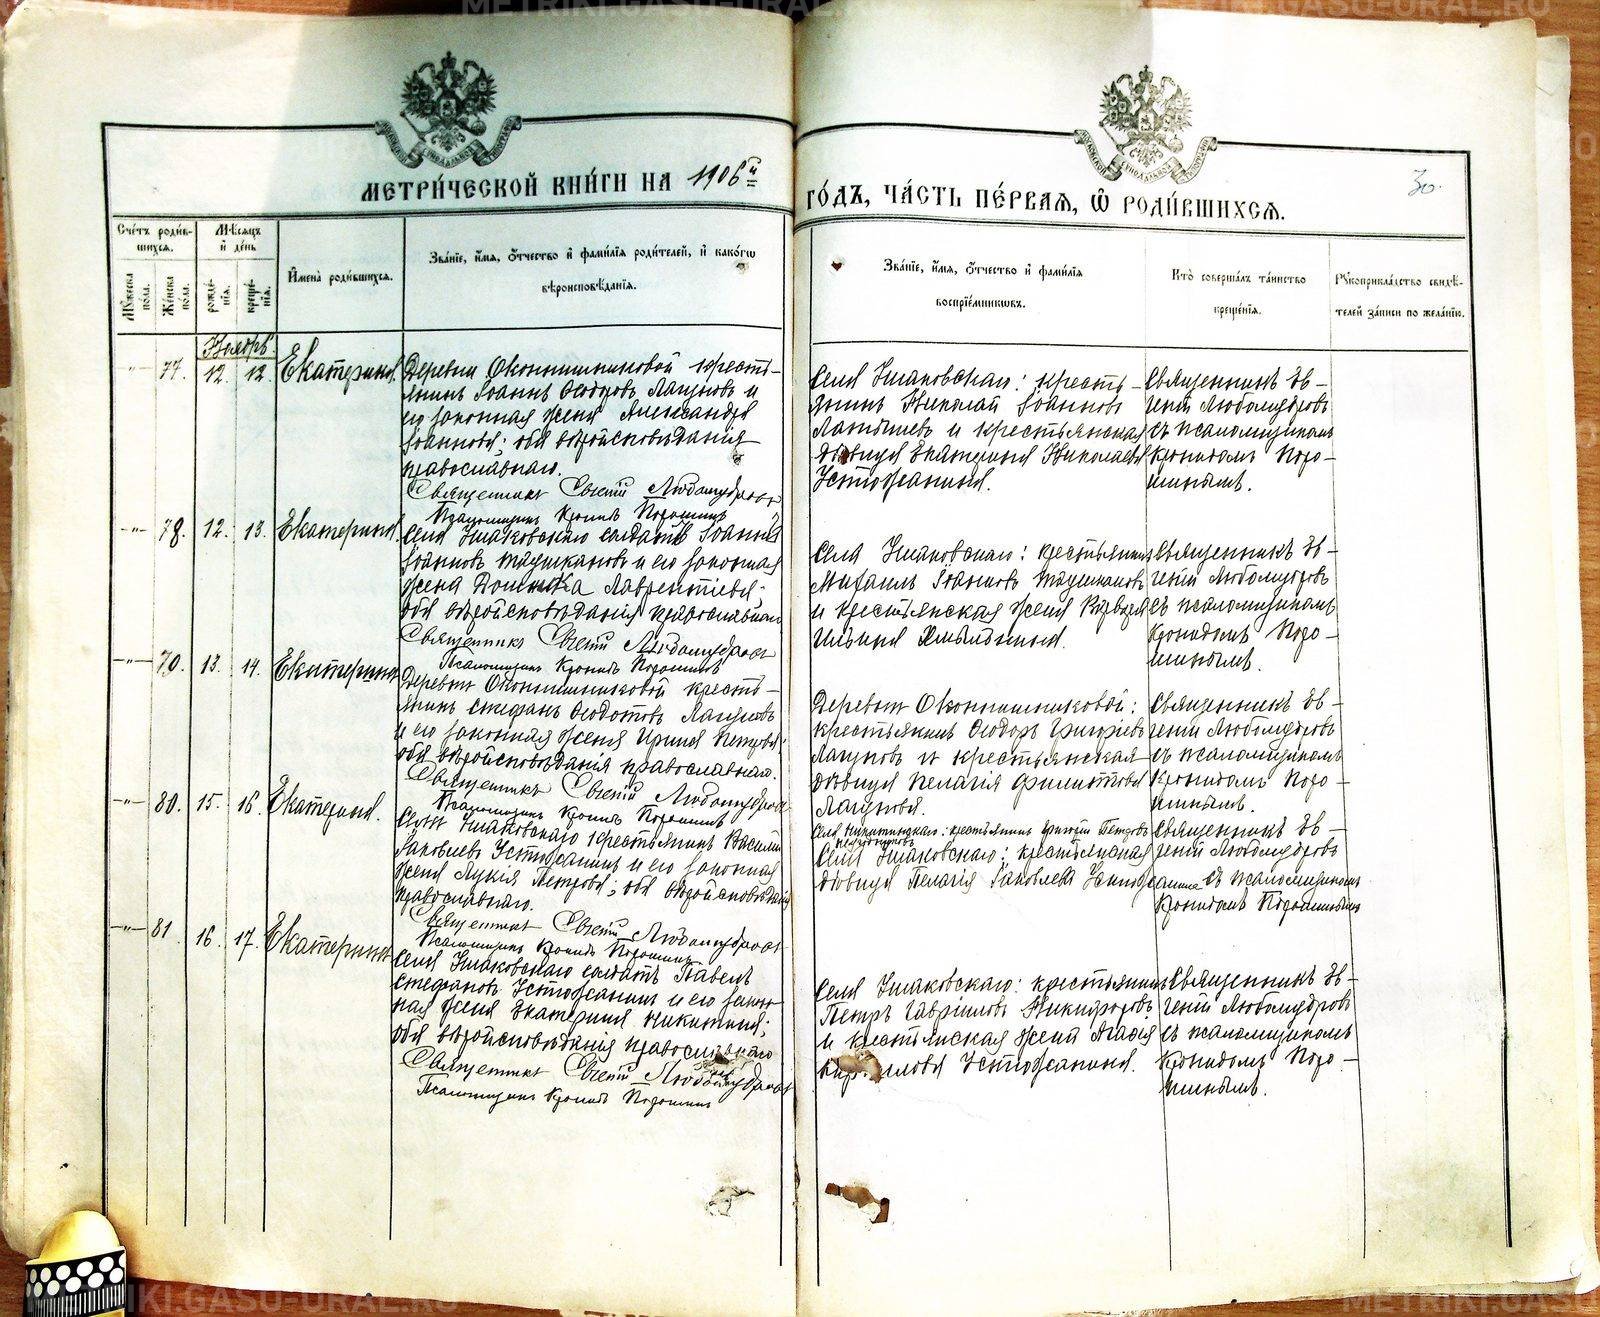 METRIKI.GASU-URAL.RU
МЕТРИ́ЧЕСКОЙ КНИ́ГИ НА 1906й
ГО́ДЪ, ЧА́СТЬ ПЕ́РВАЯ, Ѿ РОДИ́ВШИХСЯ.
30.
Сче́тъ роди́в-
шихся.
Мѣ́сяцъ
и де́нь
Му́жеска
по́ла.
Же́нска
по́ла.
рожде́-
нія.
креще́-
нія.
Имена̀ роди́вшихся.
Зва́ніе, и́мя, о́тчество и фами́лія роди́телей, и како́гѡ
вѣроисповѣ́данія.
Зва́ніе, и́мя, о́тчество и фами́лія
воспріе́мниковъ.
Кто̀ соверша́лъ та́инство
креще́нія.
Рукоприкла́дство свидѣ́-
телей за́писи по жела́нію.
Ноябрь
77. 12. 12. Екатерина.
Деревни Оконишниковой кресть-
янинъ Іоаннъ Ѳеодоровъ Лагуновъ и
его законная жена Александра
Іоаннова; оба вѣроисповѣданія
православнаго.
Священникъ Евгеній Любомудровъ
Псаломщикъ Кронидъ Порошинъ
Села Ушаковскаго: кресть-
янинъ Николай Іоанновъ
Латышевъ и крестьянская
дѣвица Екатерина Николаева
Устюжанина.
Священникъ Ев-
геній Любомудровъ
съ псаломщикомъ
Кронидомъ Поро-
шинымъ.
78. 12. 13. Екатерина.
Села Ушаковскаго солдатъ Іоаннъ
Іоанновъ и его законная
жена Домника Лаврентіева;
оба вѣроисповѣданія православнаго
Священникъ Евгеній Любомудровъ
Псаломщикъ Кронидъ Порошинъ
Села Ушаковскаго: крестьянинъ
Михаилъ Іоанновъ
и крестьянская жена Варвара
Ильина
Священникъ Ев-
геній Любомудровъ
съ псаломщикомъ
Кронидомъ Поро-
шинымъ.
79. 13. 14. Екатерина
Деревни Оконишниковой кресть-
янинъ Стефанъ Ѳеодотовъ Лагуновъ
и его законная жена Ирина Петрова;
оба вѣроисповѣданія православнаго.
Священникъ Евгеній Любомудровъ
Псаломщикъ Кронидъ Порошинъ
Деревни Оконишниковой:
крестьянинъ Ѳеодоръ Григорьевъ
Лагуновъ и крестьянская
дѣвица Пелагія Филиппова
Лагунова.
Священникъ Ев-
геній Любомудровъ
съ псаломщикомъ
Кронидомъ Поро-
шинымъ.
80. 15. 16. Екатерина.
Села Ушаковскаго крестьянинъ Василій
Іаковлевъ Устюжанинъ и его законная
жена Лукія Петрова; оба вѣроисповѣданія
православнаго.
Священникъ Евгеній Любомудровъ
Псаломщикъ Кронидъ Порошинъ
Села Никитинскаго: крестьянинъ Григорій Петровъ
Села Ушаковскаго: крестьянская
дѣвица Пелагія Іаковлева Устюжанина
Священникъ Ев-
геній Любомудровъ
съ псаломщикомъ
Кронидомъ Порошинымъ
81. 16. 17. Екатерина
Села Ушаковскаго солдатъ Павелъ
Стефановъ Устюжанинъ и его закон-
ная жена Екатерина Никитина;
оба вѣроисповѣданія православнаго
Священникъ Евгеній Любомудровъ
Псаломщикъ Кронидъ Порошинъ
Села Ушаковскаго: крестьянинъ
Петръ Гавріиловъ Никифоровъ
и крестьянская жена Агафія
Устюжанина.
Священникъ Ев-
геній Любомудровъ
съ псаломщикомъ
Кронидомъ Поро-
шинымъ.
METRIKI.GASU-URAL.RU